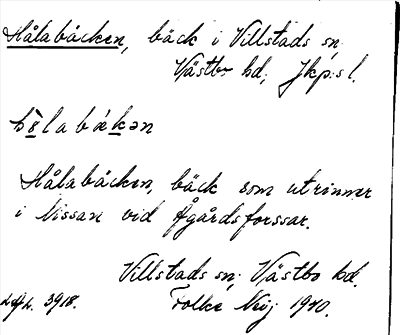 Hålabäcken, bäck i Villstads sn,
Västbo hd, Jkp:s l.
hålabäkən
Hålabäcken, bäck som utrinner
i Nissan vid Ågårdsforssar.
Villstads sn, Västbo hd.
3918. Folke Neij 1940.